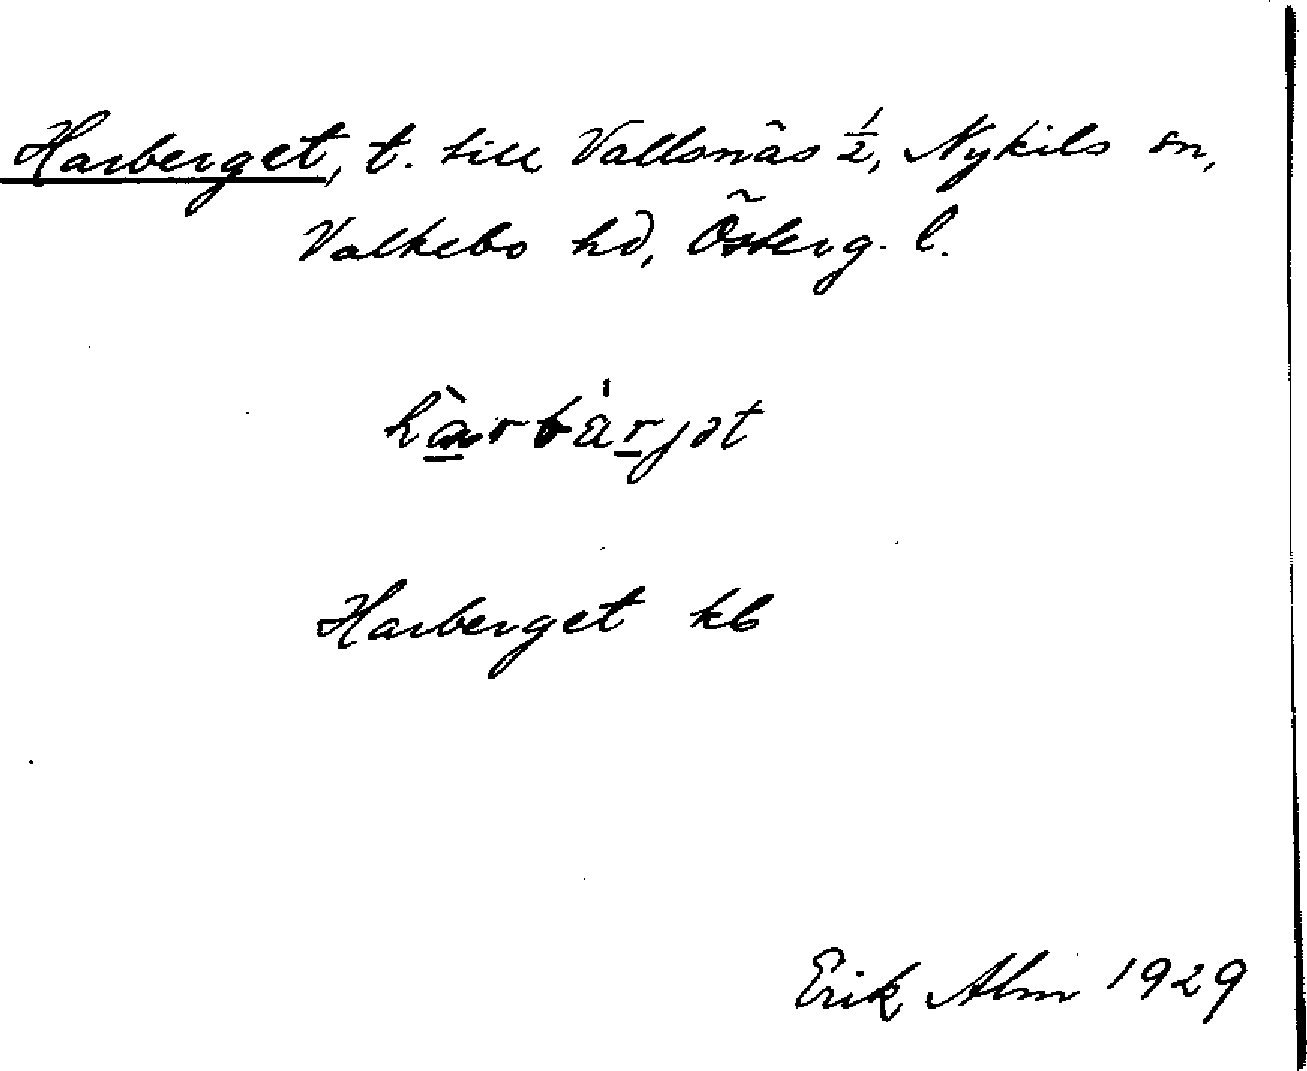 Harberget, t. till Vallsnäs ½, Nykils sn,
Valkebo hd, Österg. l.
hàrbárjət
Harberget kb
Erik Alm 1929